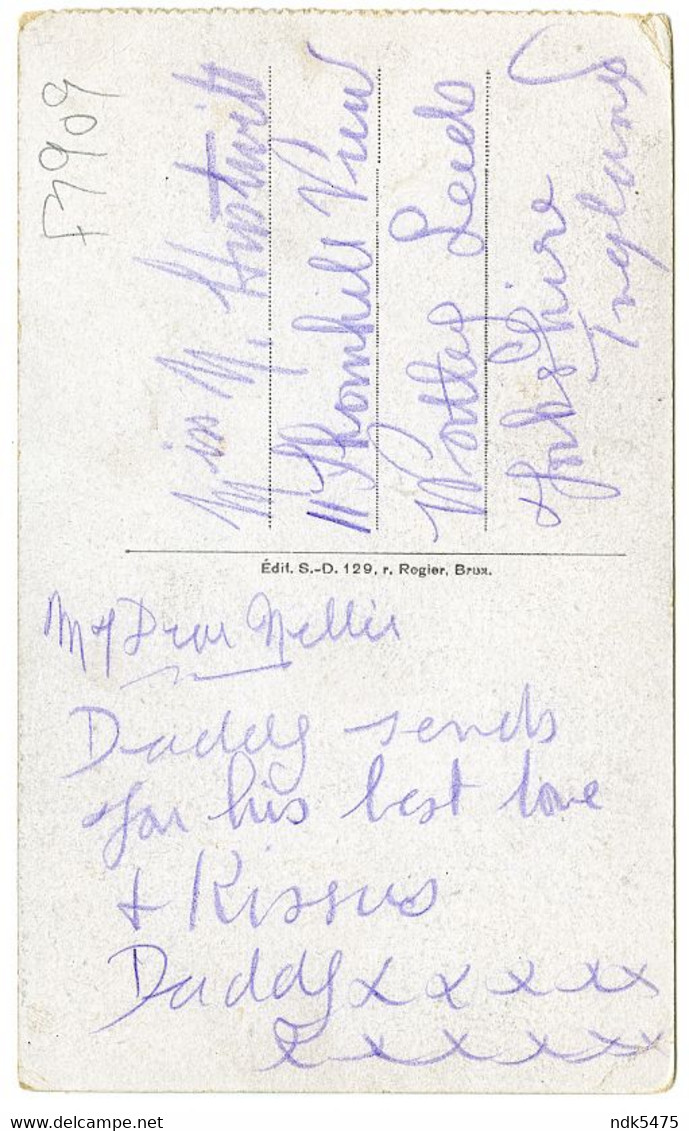 F7909
Miss N. Hustwitt
11 Thornhill View
Wortley Leeds
Yorkshire
England
Édit. S.-D. 129, r. Rogier, Brux.
My Dear Nellie
Daddy sends
you his best love
+ Kisses
Daddy x x x x x
x x x x x x
www.delcampe.net
ndk5475